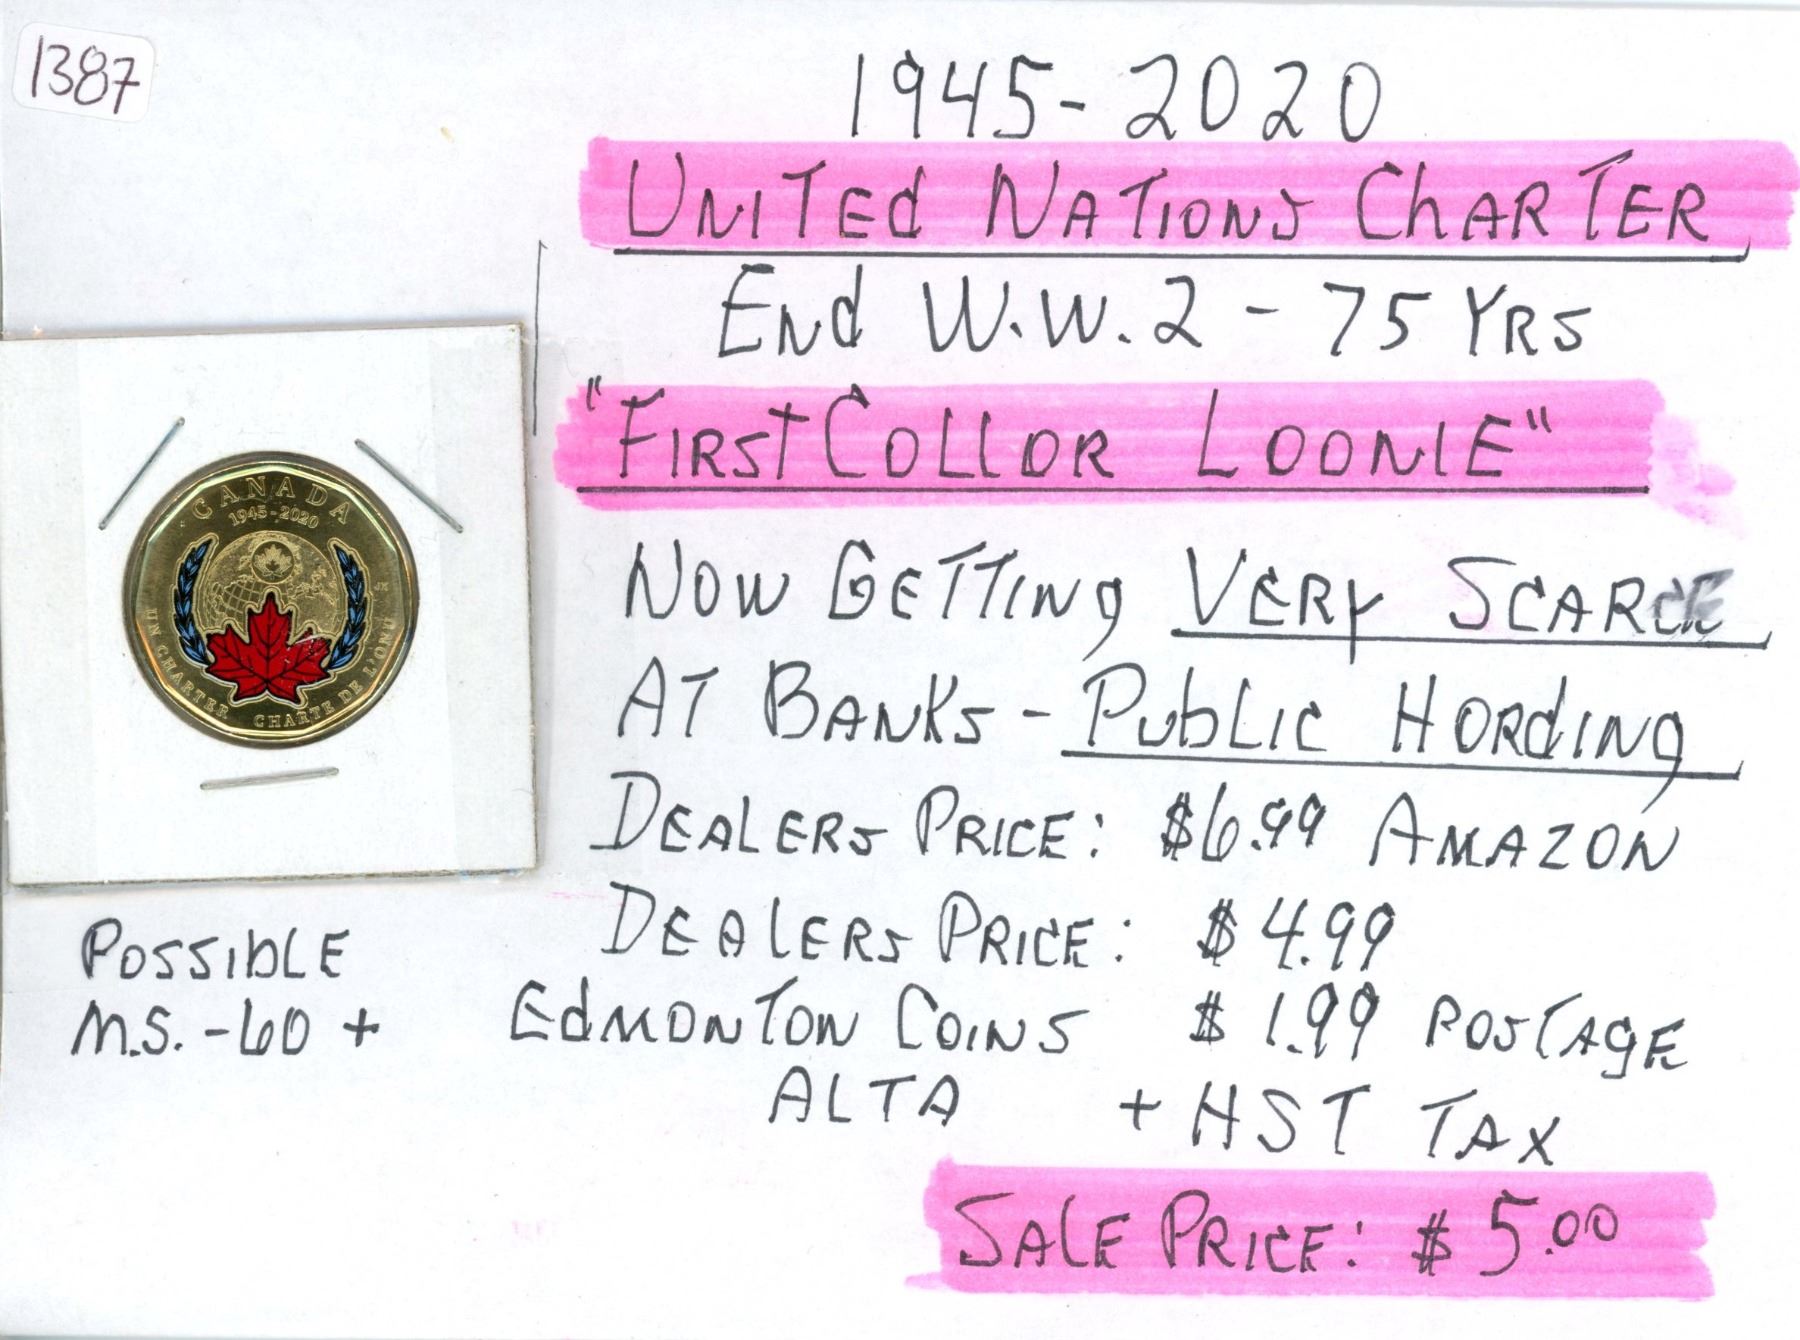 1387
1945-2020
UNITEd NATIONS ChARTER
ENd W.W.2 - 75 YRS
"FIRST COLLOR LOONIE"
NOW GETTING VERY SCARCE
AT BANKS - PubLIC HORdING
DEALERS PRICE: $6.99 AMAZON
DEALERS PRICE: $4.99
EdMONTON COINS $1.99 POSTAGE
ALTA + HST TAX
SALE PRICE: $5.00
CANADA
1945-2020
JX
UN CHARTER CHARTE DE L'ONU
POSSIbLE
M.S. -60 +